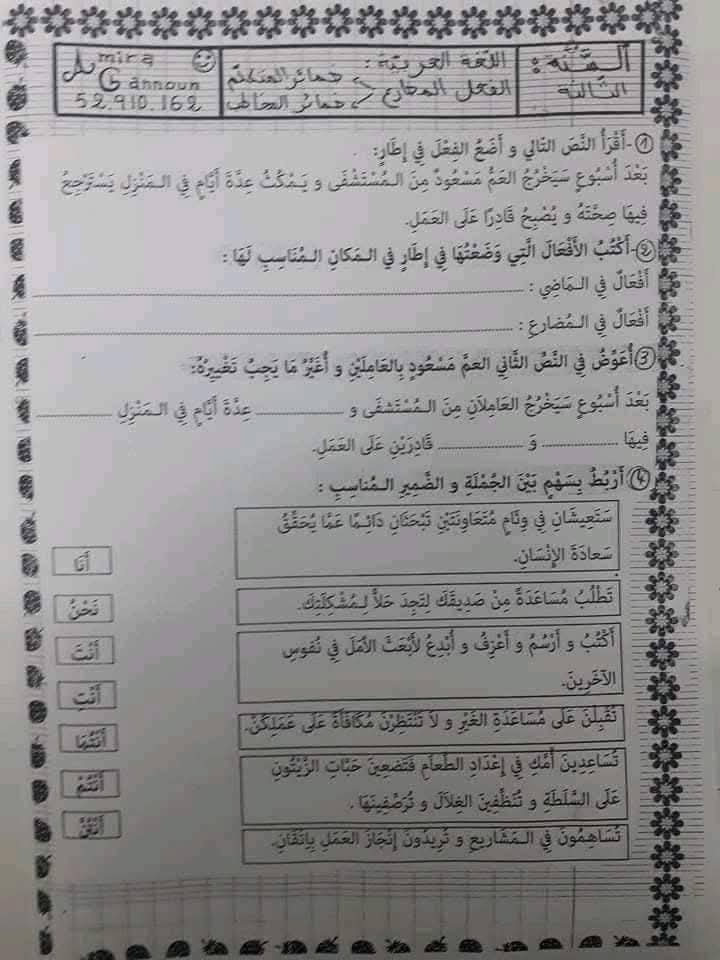 السَّنَة :
الثالثة
اللغة العربية :
الفعل المضارع < ضمائر المتكلم
ضمائر المخاطب
Amira
Gannoun
52.910.162
①-أَقْرَأُ النَّصَ التَالِي و أَضَعُ الفِعْلَ فِي إِطَارٍ:
بَعْدَ أُسْبُوعٍ سَيَخْرُجُ العَمُّ مَسْعُودٌ مِنَ الـمُسْتَشْفَى و يَـمْكُثُ عِدَّةَ أَيَّامٍ فِي الـمَنْزِلِ يَسْتَرْجِعُ
فِيهَا صِحَّتَهُ و يُصْبِحُ قَادِرًا عَلَى العَمَلِ.
②-أَكْتُبُ الأَفْعَالَ الَّتِي وَضَعْتُهَا فِي إِطَارٍ في الـمَكانِ الـمُنَاسِبِ لَهَا :
أَفْعَالٌ فِي الـمَاضِي :
أَفْعَالٌ فِي الـمُضارعِ :
③أُعَوِّضُ فِي النَّصِّ الثَّانِي العمَّ مَسْعُودٍ بِالعَامِلَيْنِ و أُغَيِّرُ مَا يَجِبُ تَغْيِيرُهُ:
بَعْدَ أُسْبُوعٍ سَيَخْرُجُ العَامِلاَنِ مِنَ الـمُسْتَشفَى و ............ عِدَّةَ أَيَّامٍ فِي الـمَنْزِلِ ............
فِيهَا ............ وَ ............ قَادِرَيْنِ عَلَى العَمَلِ.
④ أَرْبُطُ بِسَهْمٍ بَيْنَ الجُمْلَةِ و الضَّمِيرِ الـمُنَاسِبِ :
سَتَعِيشَانِ فِي وِئَامٍ مُتَعَاوِنَتَيْنِ تَبْحَثَانِ دَائِـمًا عَمَّا يُحَقِّقُ
سَعَادَةَ الإِنْسَانِ.
تَطْلُبُ مُسَاعَدَةً مِنْ صَدِيقِكَ لِتَجِدَ حَلاًّ لِـمُشْكِلَتِكَ.
أَكْتُبُ و أَرْسُمُ و أَعْزِفُ و أُبْدِعُ لأَبْعَثَ الأَمَلَ فِي نُفُوسِ
الآخَرِينَ.
تُقْبِلْنَ عَلَى مُسَاعَدَةِ الغَيْرِ و لاَ تَنْتَظِرْنَ مُكَافَأَةً عَلَى عَمَلِكُنَّ.
تُسَاعِدِينَ أُمَّكِ فِي إِعْدَادِ الطَّعَامِ فَتَضَعِينَ حَبَّاتِ الزَّيْتُونِ
عَلَى السَّلَطَةِ و تُنَظِّفِينَ الغِلاَلَ و تُرَصِّفِينَهَا .
تُسَاهِمُونَ فِي الـمَشَارِيعِ و تُرِيدُونَ إِنْجَازَ العَمَلِ بِإِتْقَانٍ.
أَنَا
نَحْنُ
أَنْتَ
أَنْتِ
أَنْتُمَا
أَنْتُمْ
أَنْتُنَّ